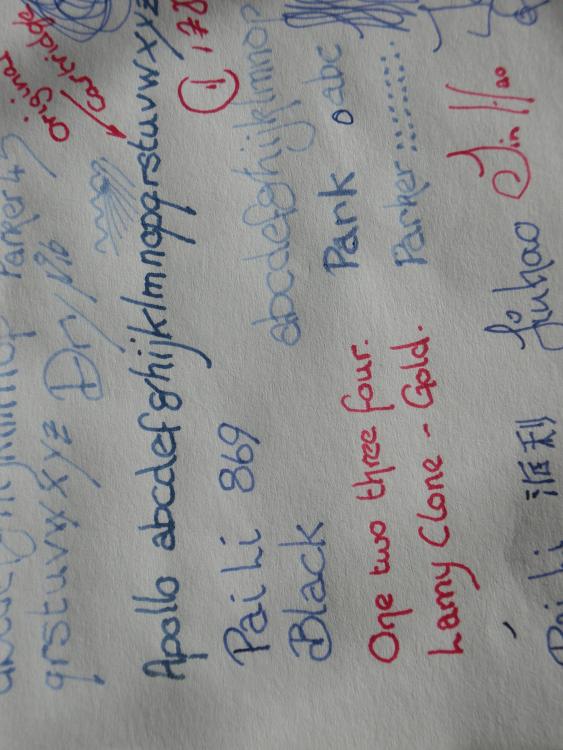 qrstuvwxyz Dry Nib
original cartridge
Apollo abcdefghijklmnopqrstuvwxyz
Pai Li 869 abcdefghijklmnop
Black Park abc
One two three four. Parker
Lamy Clone - Gold.
Jinhao Jin Hao
Pai Li 派利